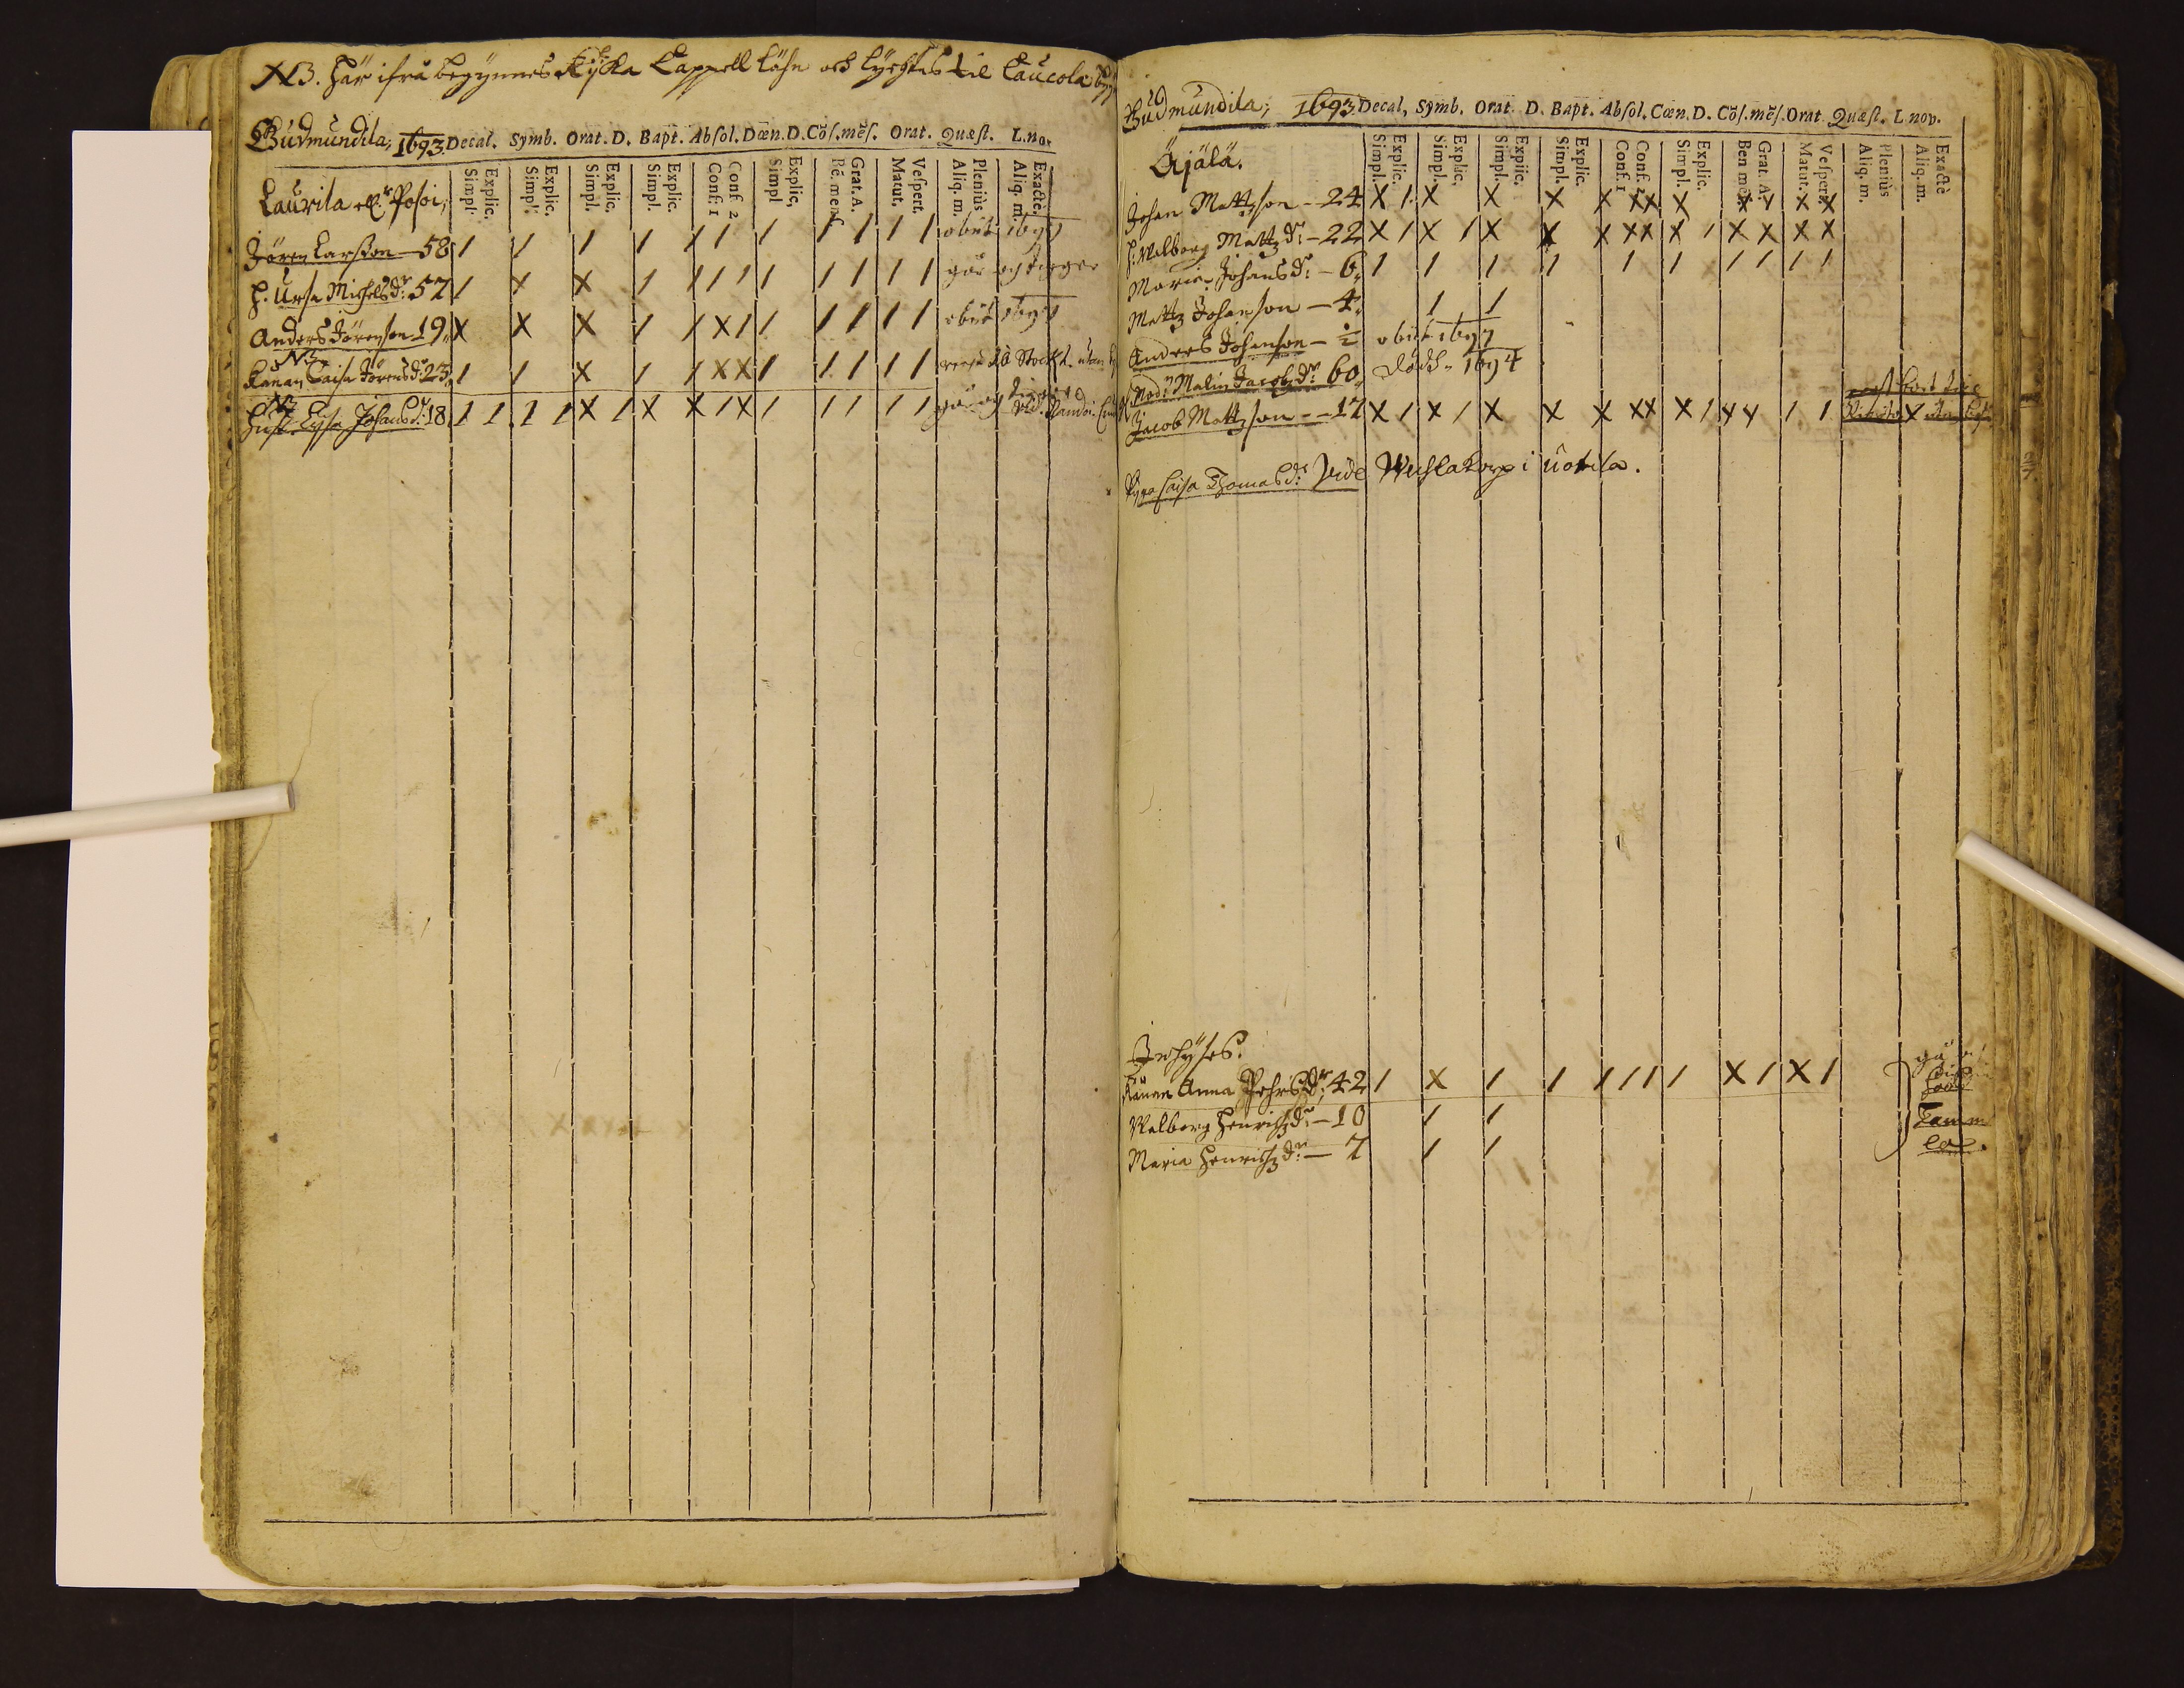 NB. Här ifrå begynnes Kyska Cappell Läsn och lychtes til Laucola by
Gudmundila, 1693. Decal. Symb. Orat. D. Bapt. Abſol. Dœn. D. Cõſ. mẽſ. Orat. Quæſt. L. nov.
Laurila ell.r Posoi;
Explic. Simpl. Explic. Simpl. Explic. Simpl. Explic. Simpl. Conf. 2 Conf. 1 Explic. Simpl Grat. A. Bẽ. menſ Veſpert. Matut. Pleniùs Aliq. m. Exactè Aliq. m.
Jören Larsson 58 / / / / / / / / / / / obiit 1697
H. Ursa Michelsdr. 57 / X X / / / / / / / / / går och tigger
Anders Jörenson 19 X X X / / X / / / / / / obiit 1697
NB
Kånan Caisa Jörensdr. 23 / / X / / X X / / / / / Stockh. utan
NB
Hust. Lisa Johansdr. 18 / / / / X / X X / X / / / / / går och tigger
Gudmundila; 1693 Decal, Symb. Orat. D. Bapt. Abſol. Cœn. D. Cõſ. mẽſ. Orat Quæſt. L. nov.
Äjälä.
Explic. Simpl. Explic. Simpl. Explic. Simpl. Explic. Simpl. Conf. 2 Conf. 1 Explic. Simpl. Grat. A. Ben mẽſ Veſpert. Matut. Pleniùs Aliq. m. Exactè Aliq. m.
Johan Mattzson - 24 X / X X X X XX X X X X X
H. Walborg Mattzdr. - 22 X / X / X X X XX X / X X X X
Maria Johansdr. - 6 / / / / / / / / / /
Mattz Johanson - 4 / /
Andres Johanson - ½ obiit 1697
Mod.r Malin Jacobzdr. 60 Dödh. 1694
Jacob Mattzson - 17 X / X / X X X XX X / X X / /
Pyga Caisa Thomasdr. Vide Wechlakorp i Uotila.
Inhyses.
Kånan Anna Pehrsdr. 42 / X / / / / / / X / X /
Walborg Henrichzdr. - 10 / /
Maria Henrichzdr. - 7 / /